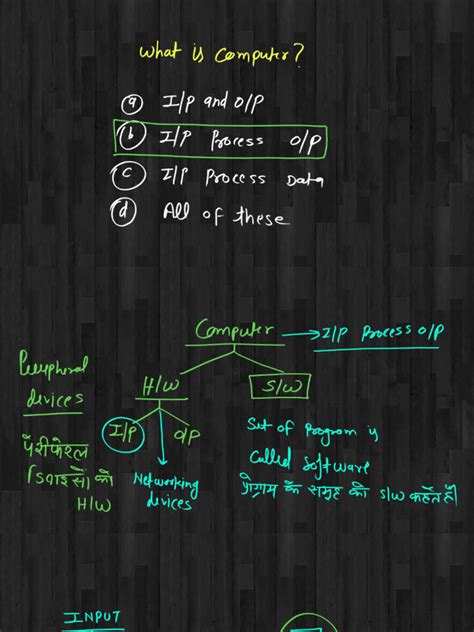 What is Computer?
a I/P and O/P
b I/P Process O/P
c I/P Process Data
d All of these
Computer → I/P Process O/P
Peripheral
devices
पेरीफेरल
डिवाइसों को
H/W
H/W
S/W
I/P
O/P
Networking
devices
Set of Program is
Called Software
प्रोग्राम के समूह को S/W कहते हैं
INPUT